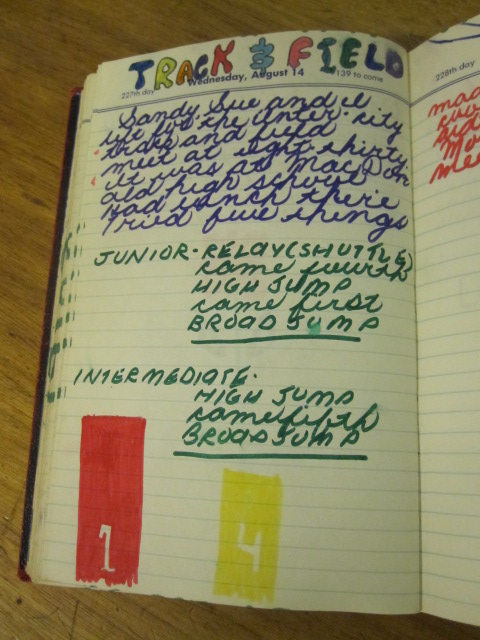 TRACK & FIELD
Wednesday, August 14
227th day
139 to come
Sandy Sue and I
left for the inter-city
track and field
meet at eight thirty.
It was at MacDon
ald high school
Had lunch there
Tried five things
JUNIOR- RELAY (SHUTTLE)
came fourth
HIGH JUMP
came first
BROAD JUMP
INTERMEDIATE-
HIGH JUMP
came fifth
BROAD JUMP
1
4
228th day